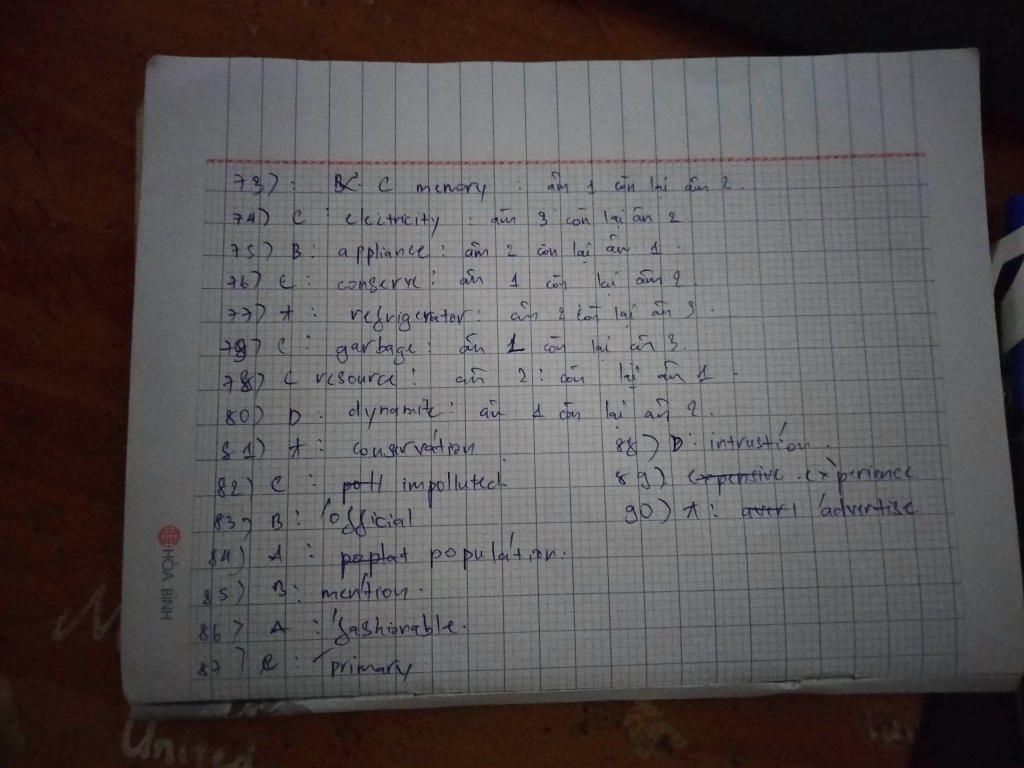 73) : C memory : âm 1 còn lại âm 2.
74) C : elcitricity : âm 3 còn lại âm 2
75) B : appliance : âm 2 còn lại âm 1.
76) C : conserve : âm 1 còn lại âm 2
77) A : refrigerator : âm 2 còn lại âm 3.
79) C : garbage : âm 1 còn lại âm 3.
78) C resource : âm 2 : còn lại âm 1.
80) D : dynamic : âm 1 còn lại âm 2.
81) A : conservation
88) D : intrustion.
82) C : impolluted
89) expensive. experience
83) B : 'official
90) A : 'advertise
84) A : population.
85) B : mention.
86) A : 'fashionable.
87) C : 'primary
HÒA BÌNH
United